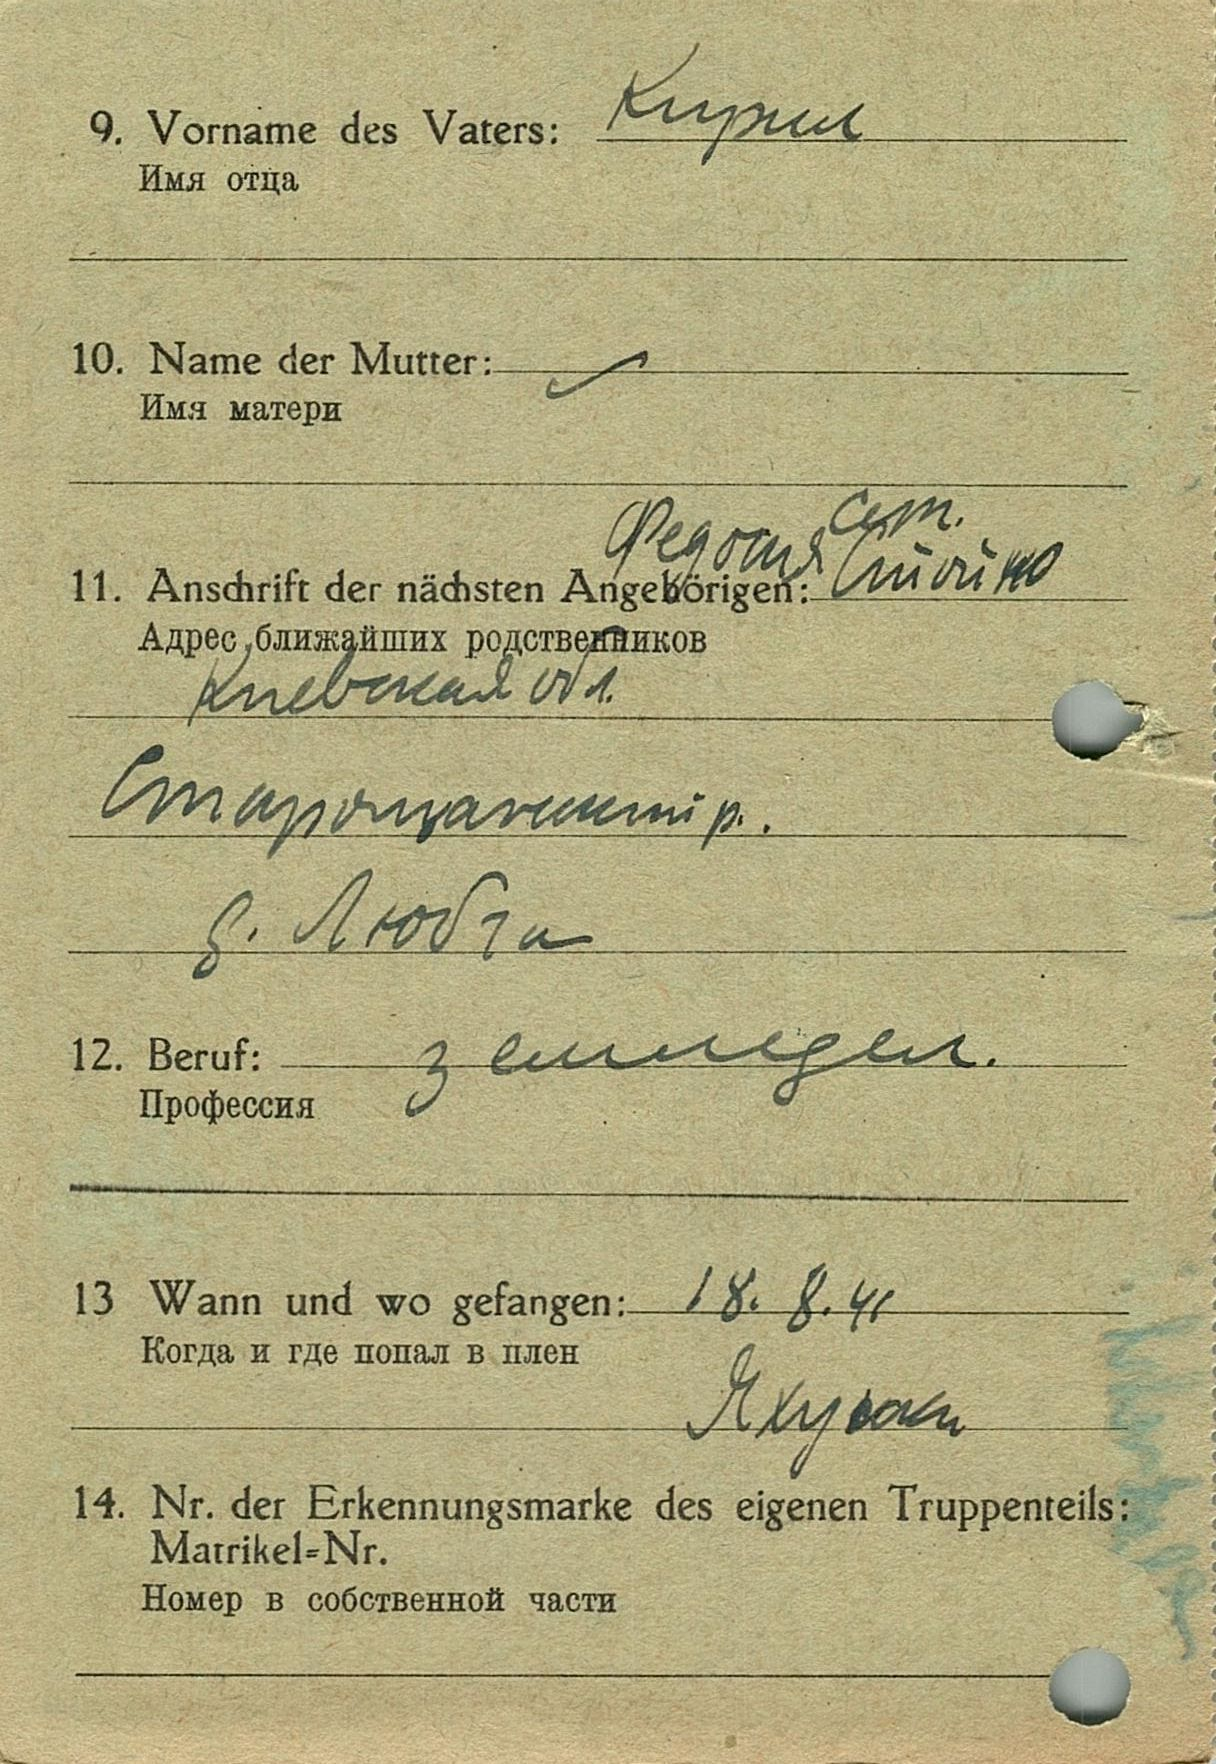 9. Vorname des Vaters: Кирил
Имя отца
10. Name der Mutter:
Имя матери
сест.
Федосия
11. Anschrift der nächsten Angehörigen:
Адрес ближайших родственников
Киевская обл.
р.
д. Любча
12. Beruf: земледел.
Профессия
13 Wann und wo gefangen: 18. 8. 41
Когда и где попал в плен
14. Nr. der Erkennungsmarke des eigenen Truppenteils:
Matrikel=Nr.
Номер в собственной части